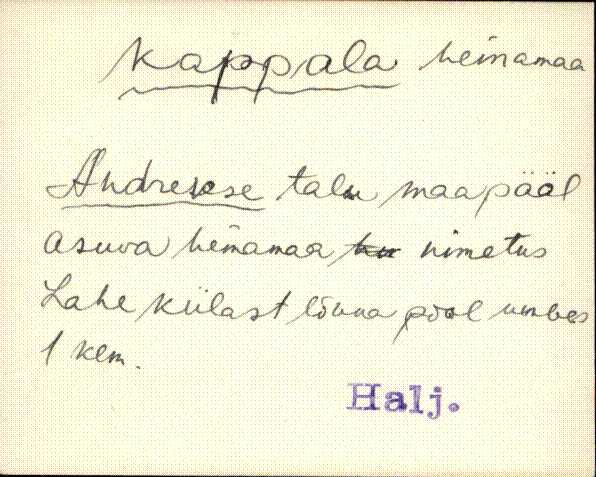 Kappala heinamaa
Andrekse talu maa pääl
asuva heinamaa nimetus
Lahe külast lõuna pool umbes
1 klm.
Halj.